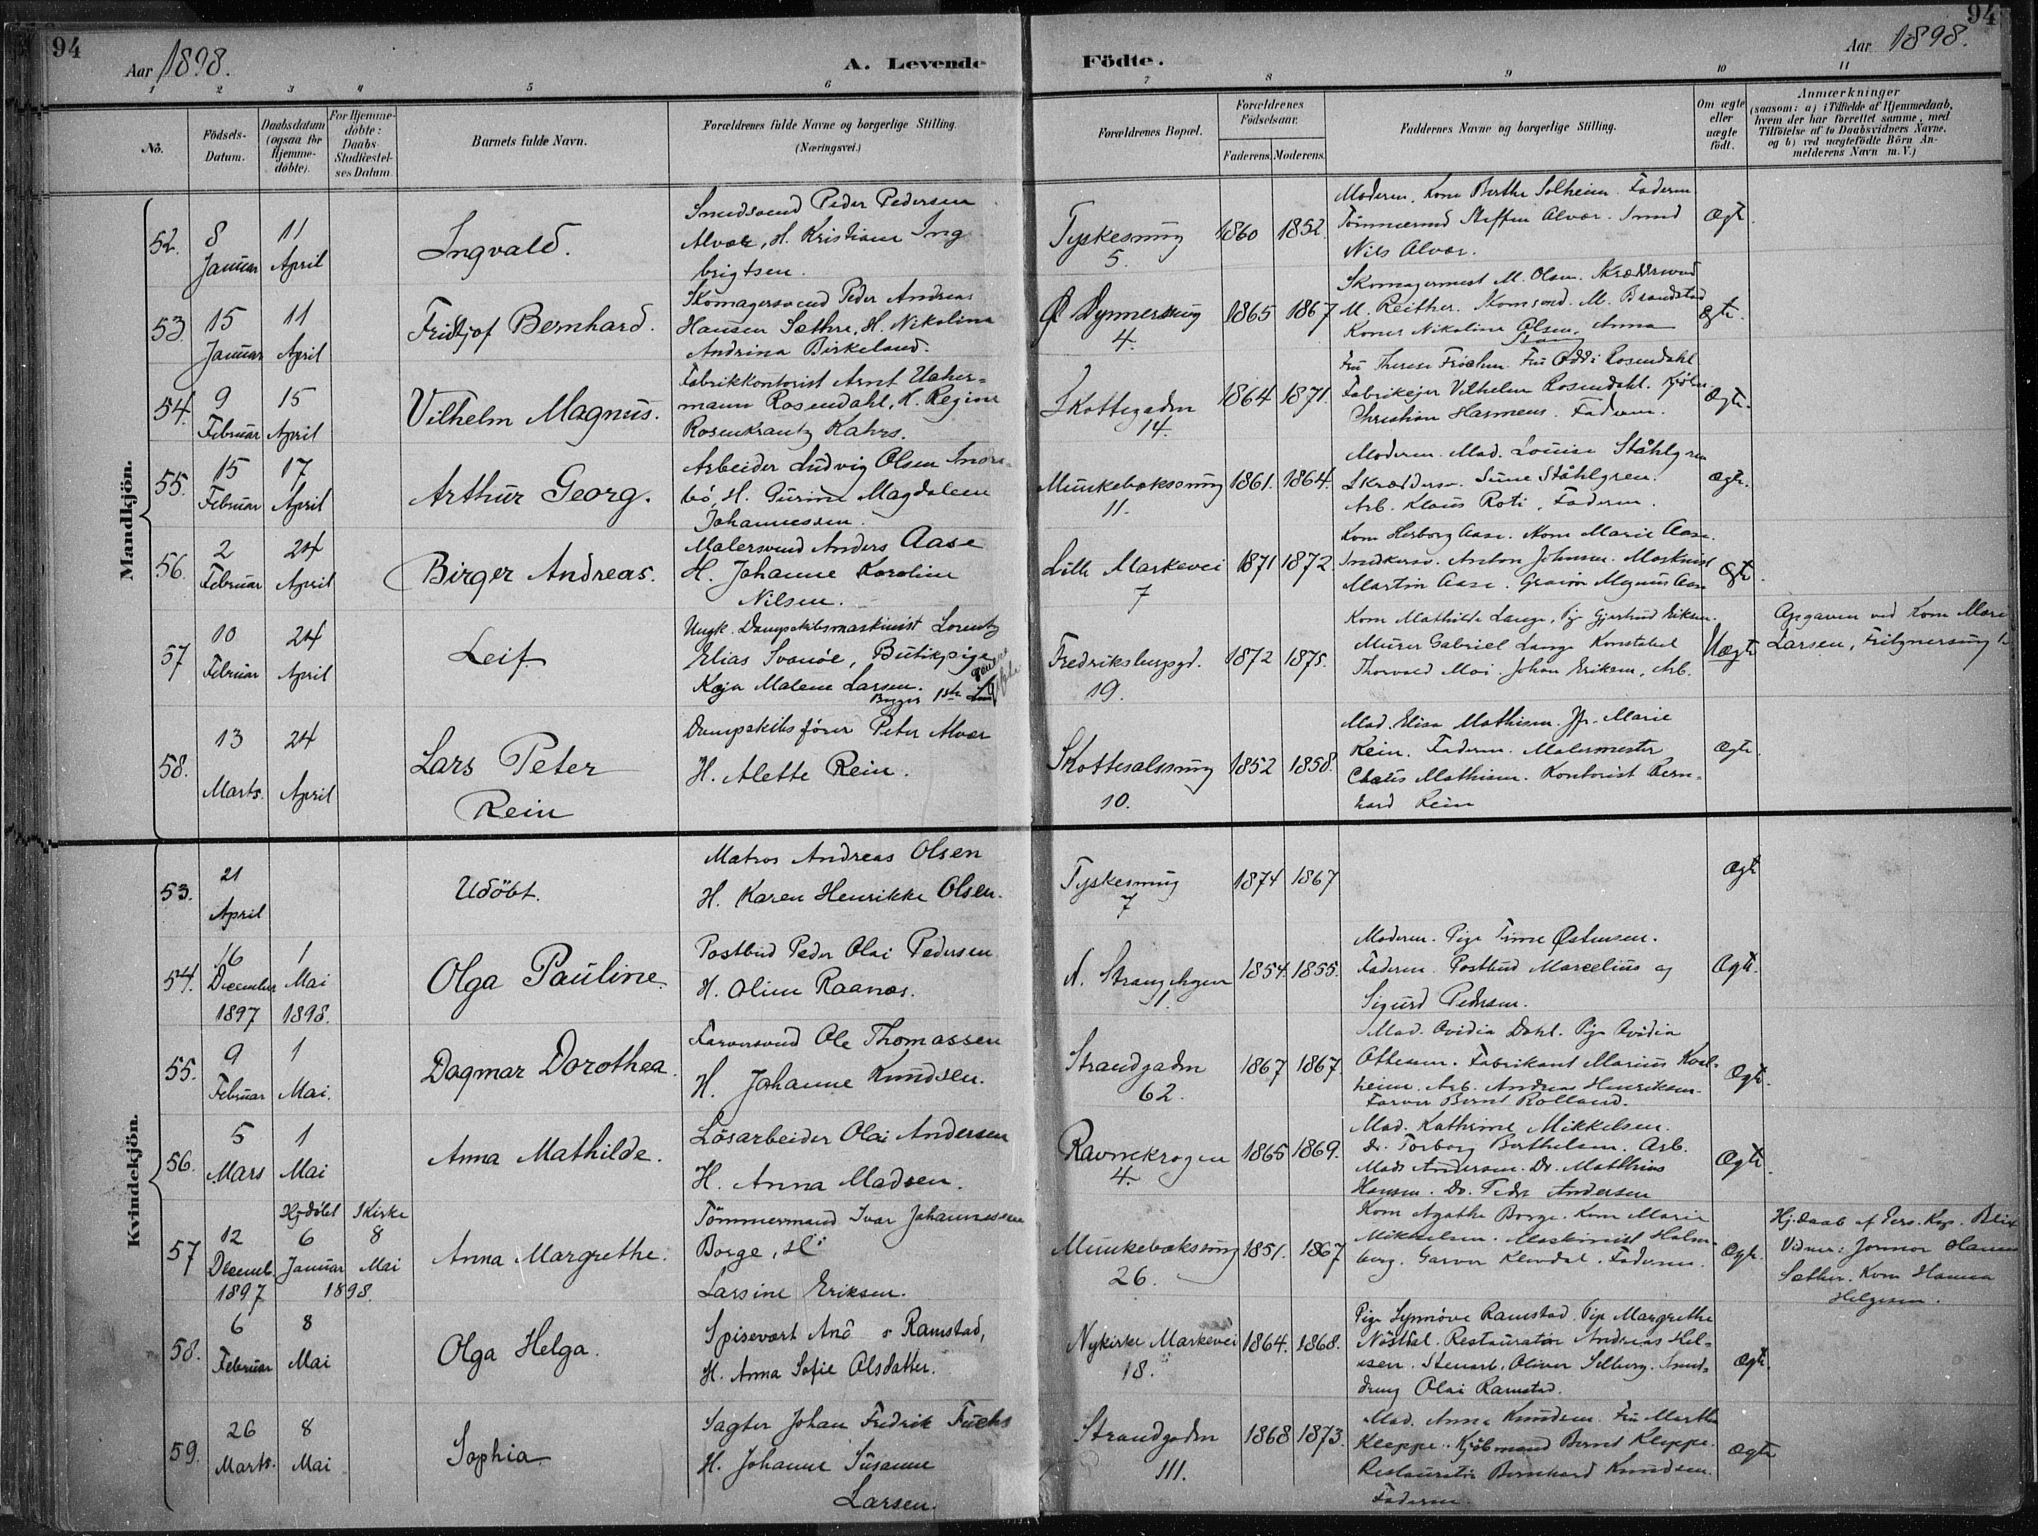 94
Aar 1898.
A. Levende
Födte.
Aar 1898.
94
1 2 3 4 5 6 7 8 9 10 11
No.
Födsels-Datum.
Daabsdatum (ogsaa for Hjemmedöbte).
For Hjemmedöbte: Daabs-Stadfæstelses Datum
Barnets fulde Navn.
Forældrenes fulde Navne og borgerlige Stilling. (Næringsvei.)
Forældrenes Bopæl.
Forældrenes Födselsaar.
Faderens. Moderens.
Faddernes Navne og borgerlige Stilling.
Om ægte eller uægte födt.
Anmærkninger
(saasom: a) i Tilfælde af Hjemmedaab,
hvem der har forrettet samme, med
Tilföielse af to Daabsvidners Navne,
og b) ved uægtefödte Börn An-
melderens Navn m. V.)
Mandkjön.
52. 8 Januar 11 April
Ingvald.
Smedsvend Peder Pedersen
Alvær, H. Kristiane Ing
brigtsen.
Tyskesmug
5.
1860 1852.
Moderen. Kone Berthe Solheim. Faderen
Tömmermd Steffen Alvær. Smed
Nils Alvær.
Ægte
53. 15 Januar 11 April
Fridtjof Bernhard.
Skomagersvend Peder Andreas
Hansen Sæthre, H. Nikoline
Andrina Birkeland.
4.
1865 1867
Skomagermest M. Olsen. Skræddersvend
M. Reither. Skomsvd. M. Brandstad
Koner Nikoline Olsen, Anna
Ægte.
54. 9 Februar 15 April
Vilhelm Magnus.
Fabrikkontorist Arnt
mann Rosendahl, H. Regine
Rosenkrantz Kahrs.
Skottegaden
14.
1864 1871.
Fabrikejer Vilhelm Rosendahl. Kjöbm
Christian Harmens. Faderen.
Ægte.
55. 15 Februar 17 April
Arthur Georg.
Arbeider Ludvig Olsen
bö, H. Gurine Magdalene
Johannessen.
Munkebæksmug
11.
1861. 1864.
Moderen. Mad. Louise Ståhlgren
Skræddersv. Sune Ståhlgren.
Arb. Klaus Roti, Faderen.
Ægte.
56. 2 Februar 24 April
Birger Andreas.
Malersvend Anders Aase
H. Johanne Karoline
Nilsen.
Lille Markevei
7
1871 1872.
Kone Herborg Aase. Kone Marie Aase.
Snedkersv. Anton Johnsen. Maskinist
Martin Aase. Gravør Magnus Aase
Ægte
57 10 Februar 24 April
Leif
Ungk. Dampskibsmaskinist Lorentz
Elias Svanøe, Butikpige
Kaja Malene Larsen.
Begges 1ste
Fredriksbergsgd.
19.
1872 1875.
Kone Mathilde Lange, Pge Gjertrud Eriksen.
Murer Gabriel Lange Konstabel
Thorvald Moi. Johan Eriksen, Arb.
Uægte
Opgaven ved Kone Marie
Larsen,
58. 13 Marts. 24 April
Lars Peter
Rein
Dampskibsförer Peter Alvær
H. Alette Rein.
Skottesalsmug
10.
1852 1858.
Mad. Elisa Mathisen. Jfr. Marie
Rein. Faderen. Malermester
Claus Mathisen. Kontorist Bern-
hard Rein
Ægte
Kvindekjön.
53. 21 April
Udöbt.
Matros Andreas Olsen
H. Karen Henrikke Olsen.
Tyskesmug
7
1874 1867
Ægte
54. 16 December 1897 1 Mai 1898.
Olga Pauline.
Postbud Peder Olai Pedersen
H. Oline Raanæs.
1.
1854. 1855.
Moderen. Pige Tine Østensen.
Faderen. Postbud Marcelius og
Sigurd Pedersen.
Ægte.
55. 9 Februar 1 Mai.
Dagmar Dorothea.
Farversvend Ole Thomassen
H. Johanne Knudsen.
Strandgaden
62.
1867 1867.
Mad. Ovidia Dahl. Pige Ovidia
Ottesen. Fabrikant Marius
heim. Arb. Andreas Henriksen.
Farver Bernt Rolland.
Ægte.
56. 5 Mars 1 Mai
Anna Mathilde.
Lösarbeider Olai Andersen
H. Anna Madsen.
Ravnekrogen
4.
1865 1869.
Mad. Kathrine Mikkelsen.
Do. Torborg Berthelsen. Arb.
Mads Andersen. Do. Matthias
Hansen. Do. Peder Andersen
Ægte.
Hjdöbt I Kirke
57 12 Decemb. 1897 6 Januar 8 Mai 1898.
Anna Margrethe.
Tömmermand Ivar Johannessen
Borge, H.
Larsine Eriksen.
Munkebæksmug
26.
1851. 1867
Kone Agathe Borge. Kone Marie
Mikkelsen. Maskinist Holm-
berg. Garver Faderen.
Ægte.
Hj.daab af Pers. Kap. Blix
Vidner: Jormor Hanna
Sæther. Kone Hanna
Helgesen.
58. 6 Februar 8 Mai
Olga Helga.
Spisevært Ramstad,
H. Anna Sofie Olsdatter.
Nykirke Markevei
18.
1864. 1868.
Pige Synnöve Ramstad. Pige Margrethe
Restauratör Andreas Hel-
Stenarb. Oliver Selberg. Smed-
dreng Olai Ramstad.
Ægte.
59. 26 Marts. 8 Mai
Sophia
Sagfter Johan Fredrik Fuchs
H. Johanne Susanne
Larsen.
Strandgaden
111.
1868 1873.
Mad. Anna Knudsen. Fru Martha
Kleppe. Kjöbmand Bernt Kleppe.
Restauratör Bernhard Knudsen.
Faderen.
Ægte